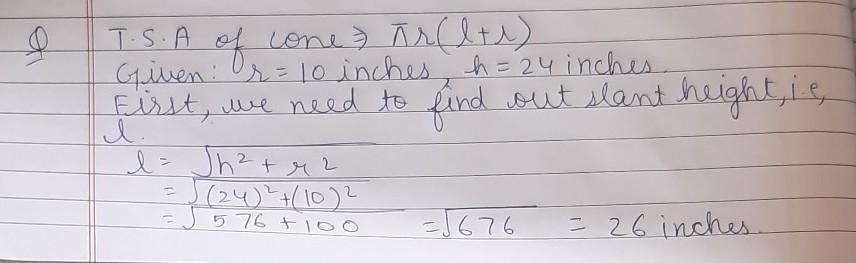 Q T.S.A of cone ⇒ πr(l+r)
Given: r = 10 inches, h = 24 inches.
First, we need to find out slant height, i.e,
l.
l = √h² + r²
= √(24)² + (10)²
= √576 + 100 = √676 = 26 inches.